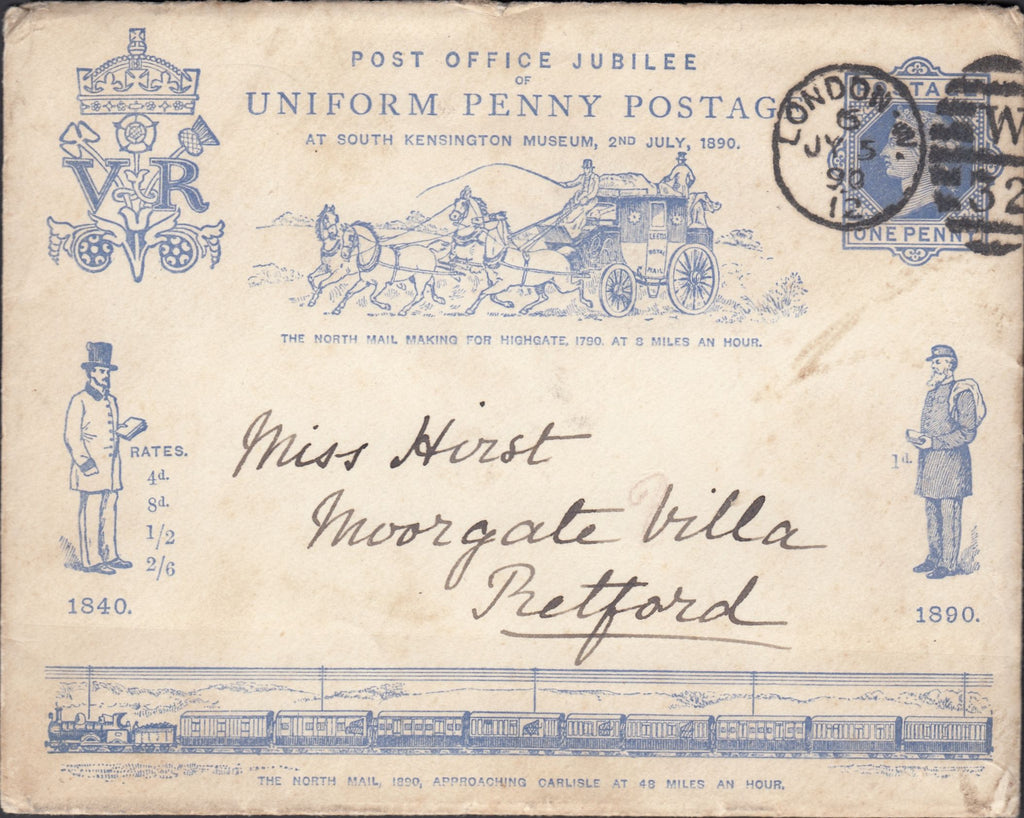 POST OFFICE JUBILEE
OF
UNIFORM PENNY POSTAG
AT SOUTH KENSINGTON MUSEUM, 2ND JULY, 1890.
VR
LONDON. W.
6
JY 5
90
12
W
32
POSTAGE
ONE PENNY
LEEDS
ROYAL
MAIL
THE NORTH MAIL MAKING FOR HIGHGATE, 1790. AT 8 MILES AN HOUR.
RATES.
4d.
8d.
1/2
2/6
1840.
1d.
1890.
Miss Hirst
Moorgate Villa
Retford
THE NORTH MAIL, 1890, APPROACHING CARLISLE AT 48 MILES AN HOUR.